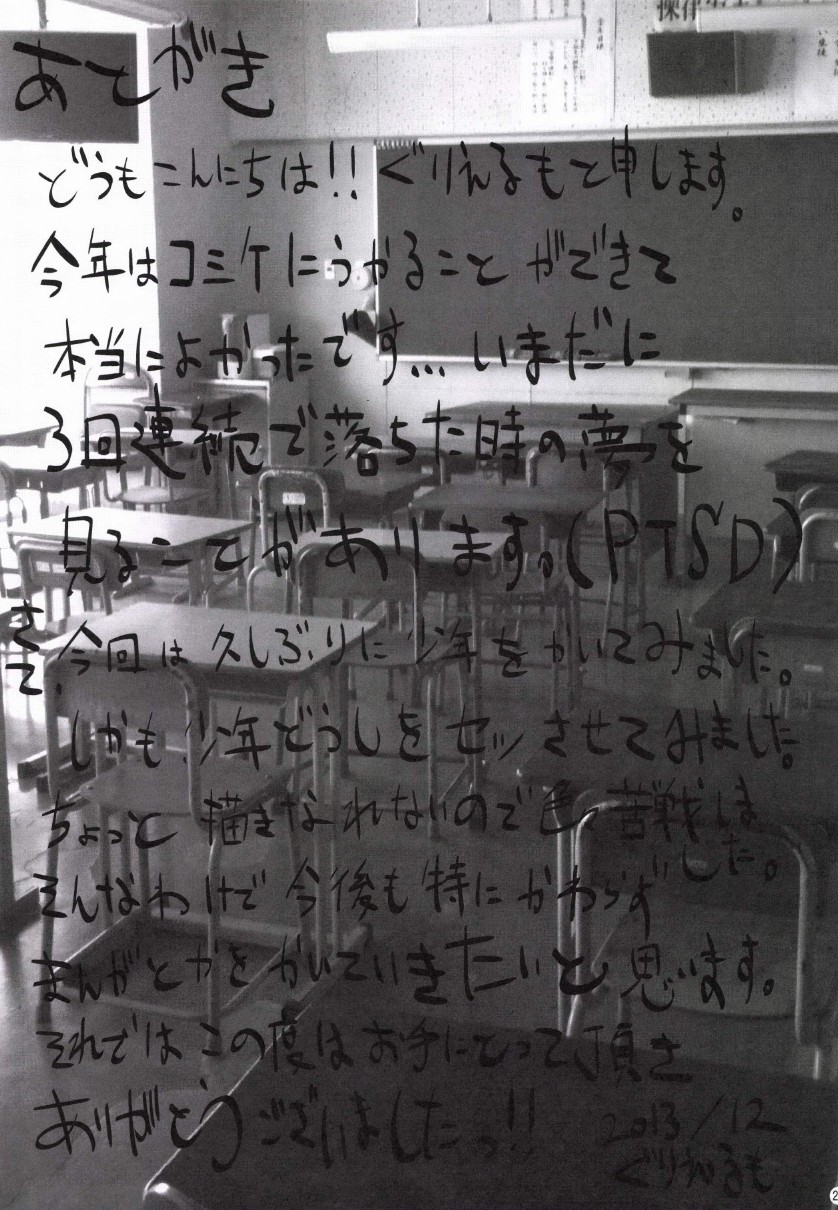 あとがき
どうもこんにちは!! ぐりえるもと申します。
今年はコミケにうかることができて
本当によかったです… いまだに
3回連続で落ちた時の夢を
見ることがあります。(PTSD)
さて、今回は久しぶりに少年をかいてみました。
しかも少年どうしをセッさせてみました。
ちょっと描きなれないので色々苦戦しました。
そんなわけで今後も特にかわらず
まんがとかをかいていきたいと思います。
それではこの度はお手にとって頂き
ありがとうございましたっ!!
2013/12
ぐりえるも
2